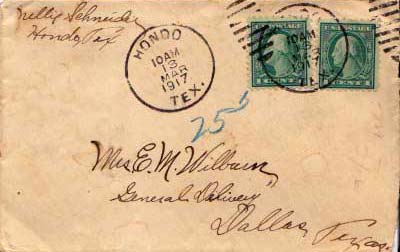 Nellie Schneider
Hondo Tex
HONDO
10AM
13
MAR
1917
TEX.
255
Mrs E. M. Wilburn
General Delivery
Dallas,
Texas.